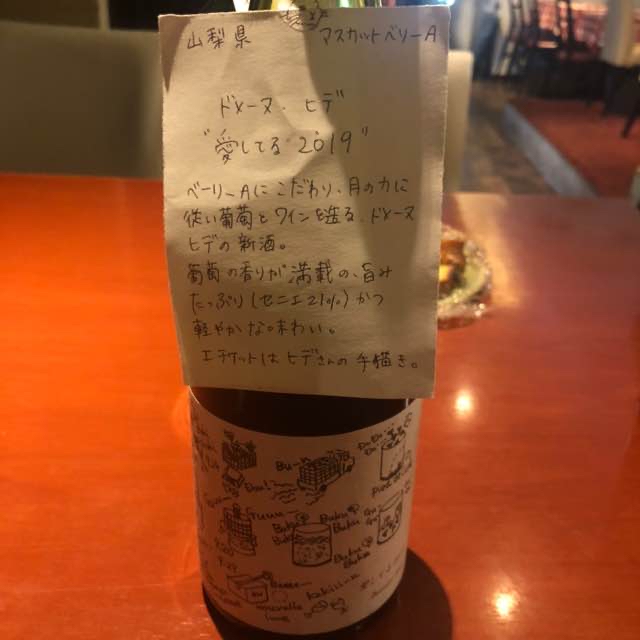 山梨県 マスカットベリーA
ドメーヌ・ヒデ
"愛してる 2019"
ベーリーAにこだわり、月の力に
従い葡萄とワインを造る、ドメーヌ
ヒデの新酒。
葡萄の香りが満載の、旨み
たっぷり(セニエ21%)かつ
軽やかな味わい。
エチケットはヒデさんの手描き。
Bu-
Guuu
Buku Buku
Buku
Buku
9.20
9.27
nouvelle
lune